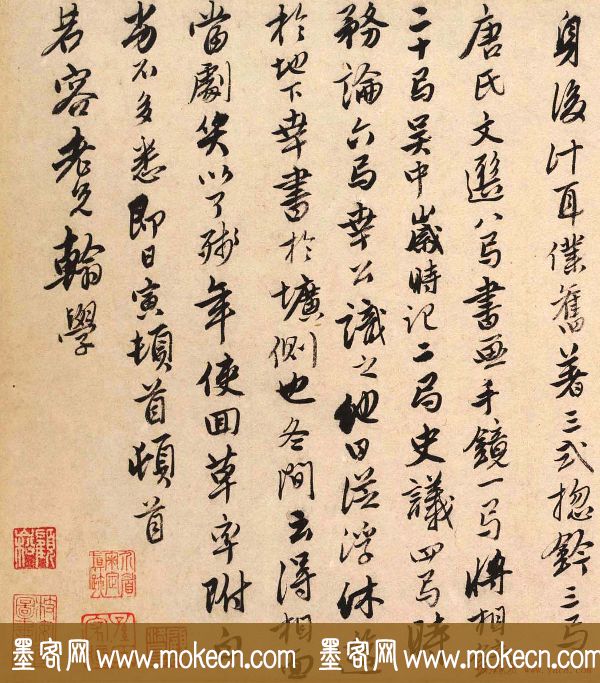 身後計耳僕舊著三式捴鈐三卷
唐氏文選八卷書画手鏡一卷將相
二十卷吴中歲時记二卷史議四卷時
務論六卷幸公識之他日溘浮休遊
於地下幸書於壙側也冬間得相面
當劇笑以了殘年使回草率附
不多悉即日寅頓首頓首
若容老兄翰學
墨客网www.mokecn.com 墨客网www.mokecn.com